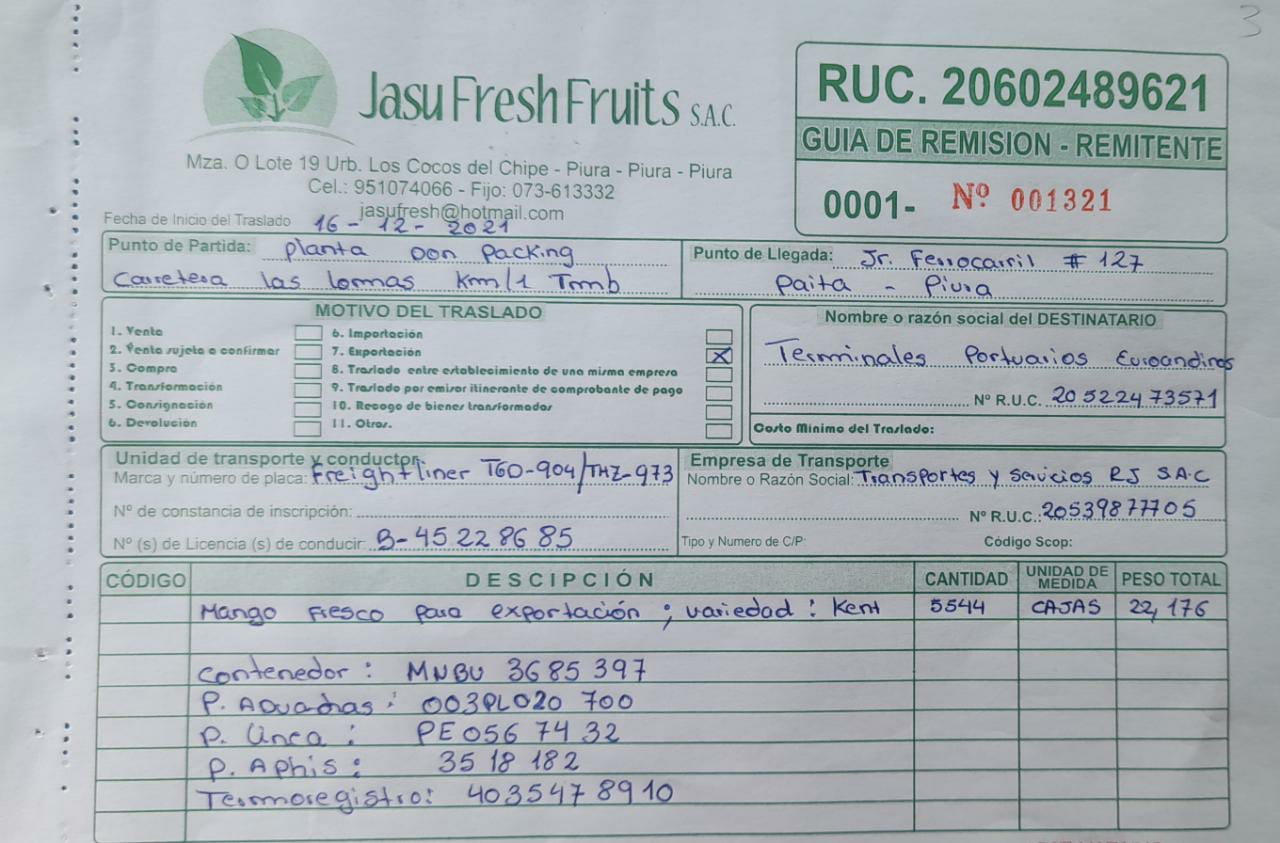 3
Jasu Fresh Fruits S.A.C.
Mza. O Lote 19 Urb. Los Cocos del Chipe - Piura - Piura - Piura
Cel.: 951074066 - Fijo: 073-613332
jasufresh@hotmail.com
RUC. 20602489621
GUIA DE REMISION - REMITENTE
0001- Nº 001321
Fecha de Inicio del Traslado 16 - 12 - 2021
Punto de Partida: Planta DON Packing
Carretera las lomas Km/1 Tmb
Punto de Llegada: Jr. Ferrocarril # 127
Paita - Piura
MOTIVO DEL TRASLADO
1. Venta
2. Venta sujeta a confirmar
3. Compra
4. Transformación
5. Consignación
6. Devolución
6. Importación
7. Exportación X
8. Traslado entre establecimiento de una misma empresa
9. Traslado por emisor itinerante de comprobante de pago
10. Recogo de bienes transformados
11. Otros.
Nombre o razón social del DESTINATARIO
Terminales Portuarios Euroandinos
Nº R.U.C. 20522473571
Costo Mínimo del Traslado:
Unidad de transporte y conductor
Marca y número de placa: Freightliner T6D-904/THZ-973
Nº de constancia de inscripción:
Nº (s) de Licencia (s) de conducir: B-45228685
Empresa de Transporte
Nombre o Razón Social: Transportes y Servicios RJ S.A.C
Nº R.U.C.: 20539877705
Tipo y Numero de C/P: Código Scop:
CÓDIGO DESCIPCIÓN CANTIDAD UNIDAD DE MEDIDA PESO TOTAL
Mango Fresco para exportación ; variedad : Kent 5544 CAJAS 22,176
Contenedor : MNBU 3685 397
P. Aduanas : 003PL020 700
P. Linea : PE056 74 32
P. Aphis : 35 18 182
Termoregistro: 4035478910